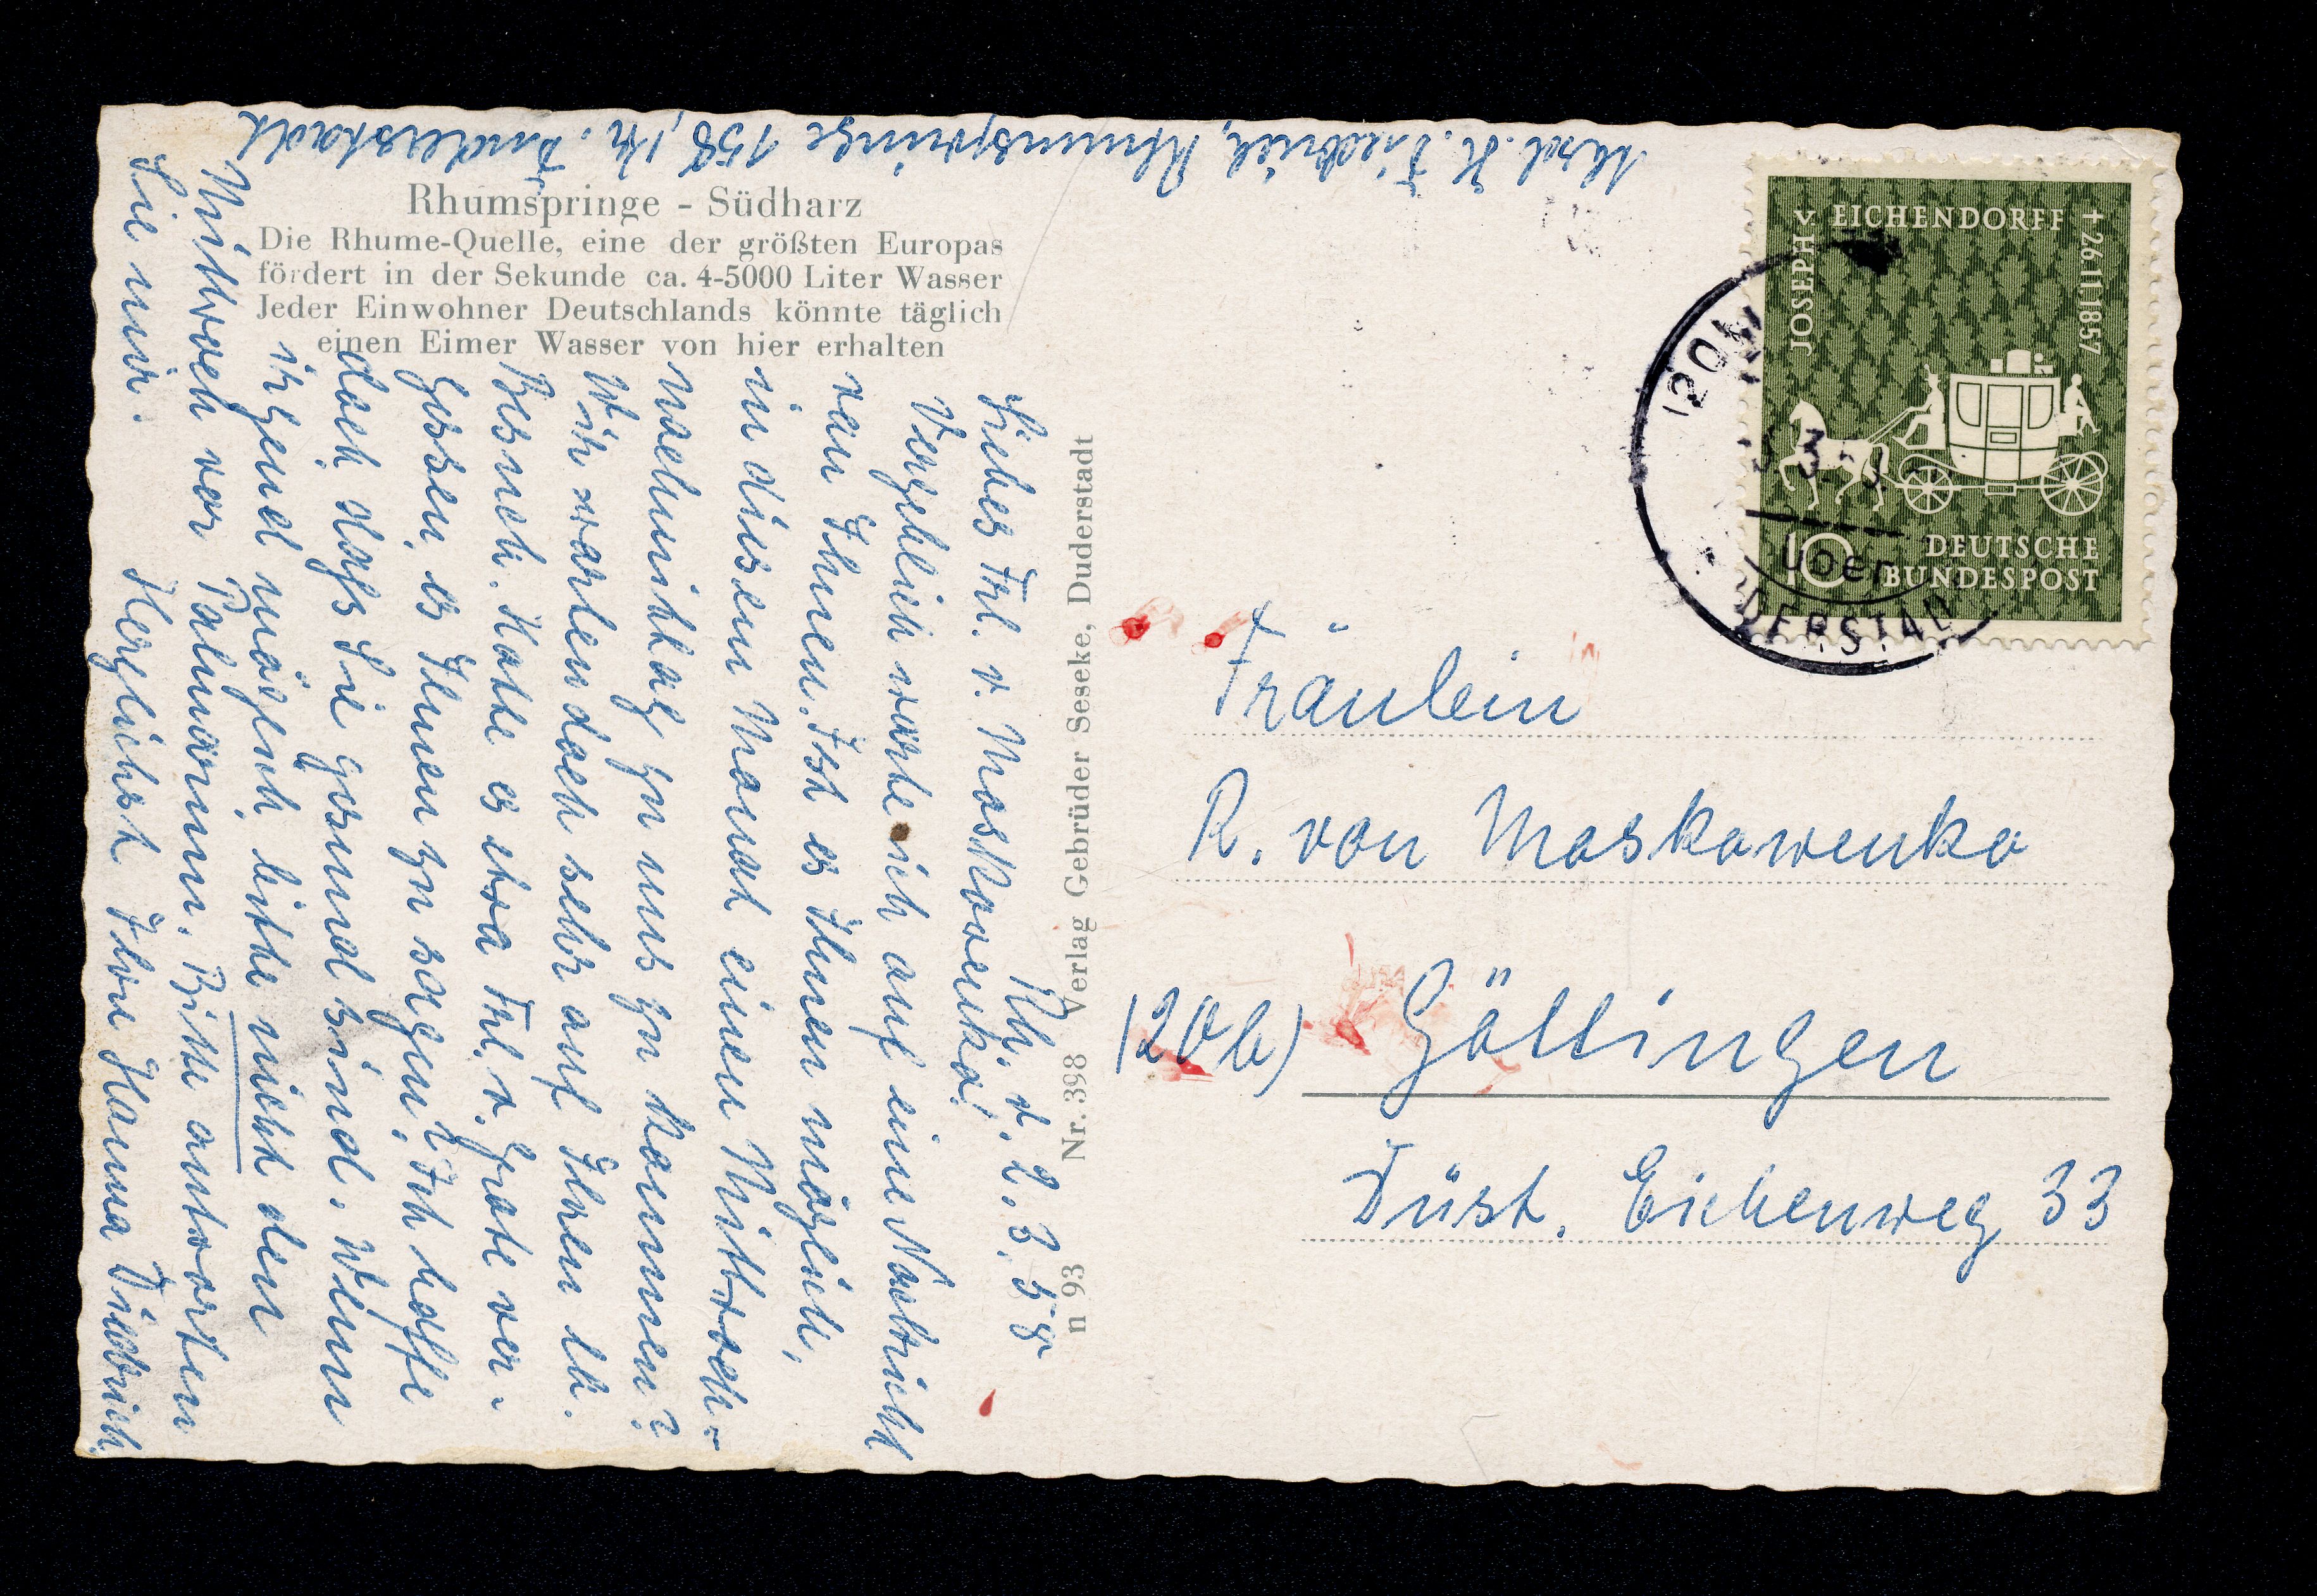 Rhumspringe - Südharz
Die Rhume-Quelle, eine der größten Europas
fördert in der Sekunde ca. 4-5000 Liter Wasser
Jeder Einwohner Deutschlands könnte täglich
einen Eimer Wasser von hier erhalten
Rh. d. 2. 3. 58
Liebes Frl. v. Moskowenko!
Vergeblich warte ich auf eine Nachricht
von Ihnen. Ist es Ihnen möglich,
in diesem Monat einen Mittwoch-
nachmittag zu uns zu kommen?
Wir warten doch sehr auf Ihren lb.
Besuch. Hatte es etwa Frl. v. Grote ver-
gessen, es Ihnen zu sagen? Ich hoffe
doch, dass Sie gesund sind. Wenn
irgend möglich, bitte nicht den
Mittwoch vor Palmarum. Bitte antworten
Sie mir. Herzlichst Ihre Hanna Diedrich
Absd. H. Diedrich, Rhumspringe 158, Kr. Duderstadt
Nr. 398 Verlag Gebrüder Seseke, Duderstadt
n 93
JOSEPH V. EICHENDORFF † 26.11.1857
10 DEUTSCHE
BUNDESPOST
über
DERSTAD
Fräulein
R. von Moskowenko
(20b) Göttingen
Düst. Eichenweg 33